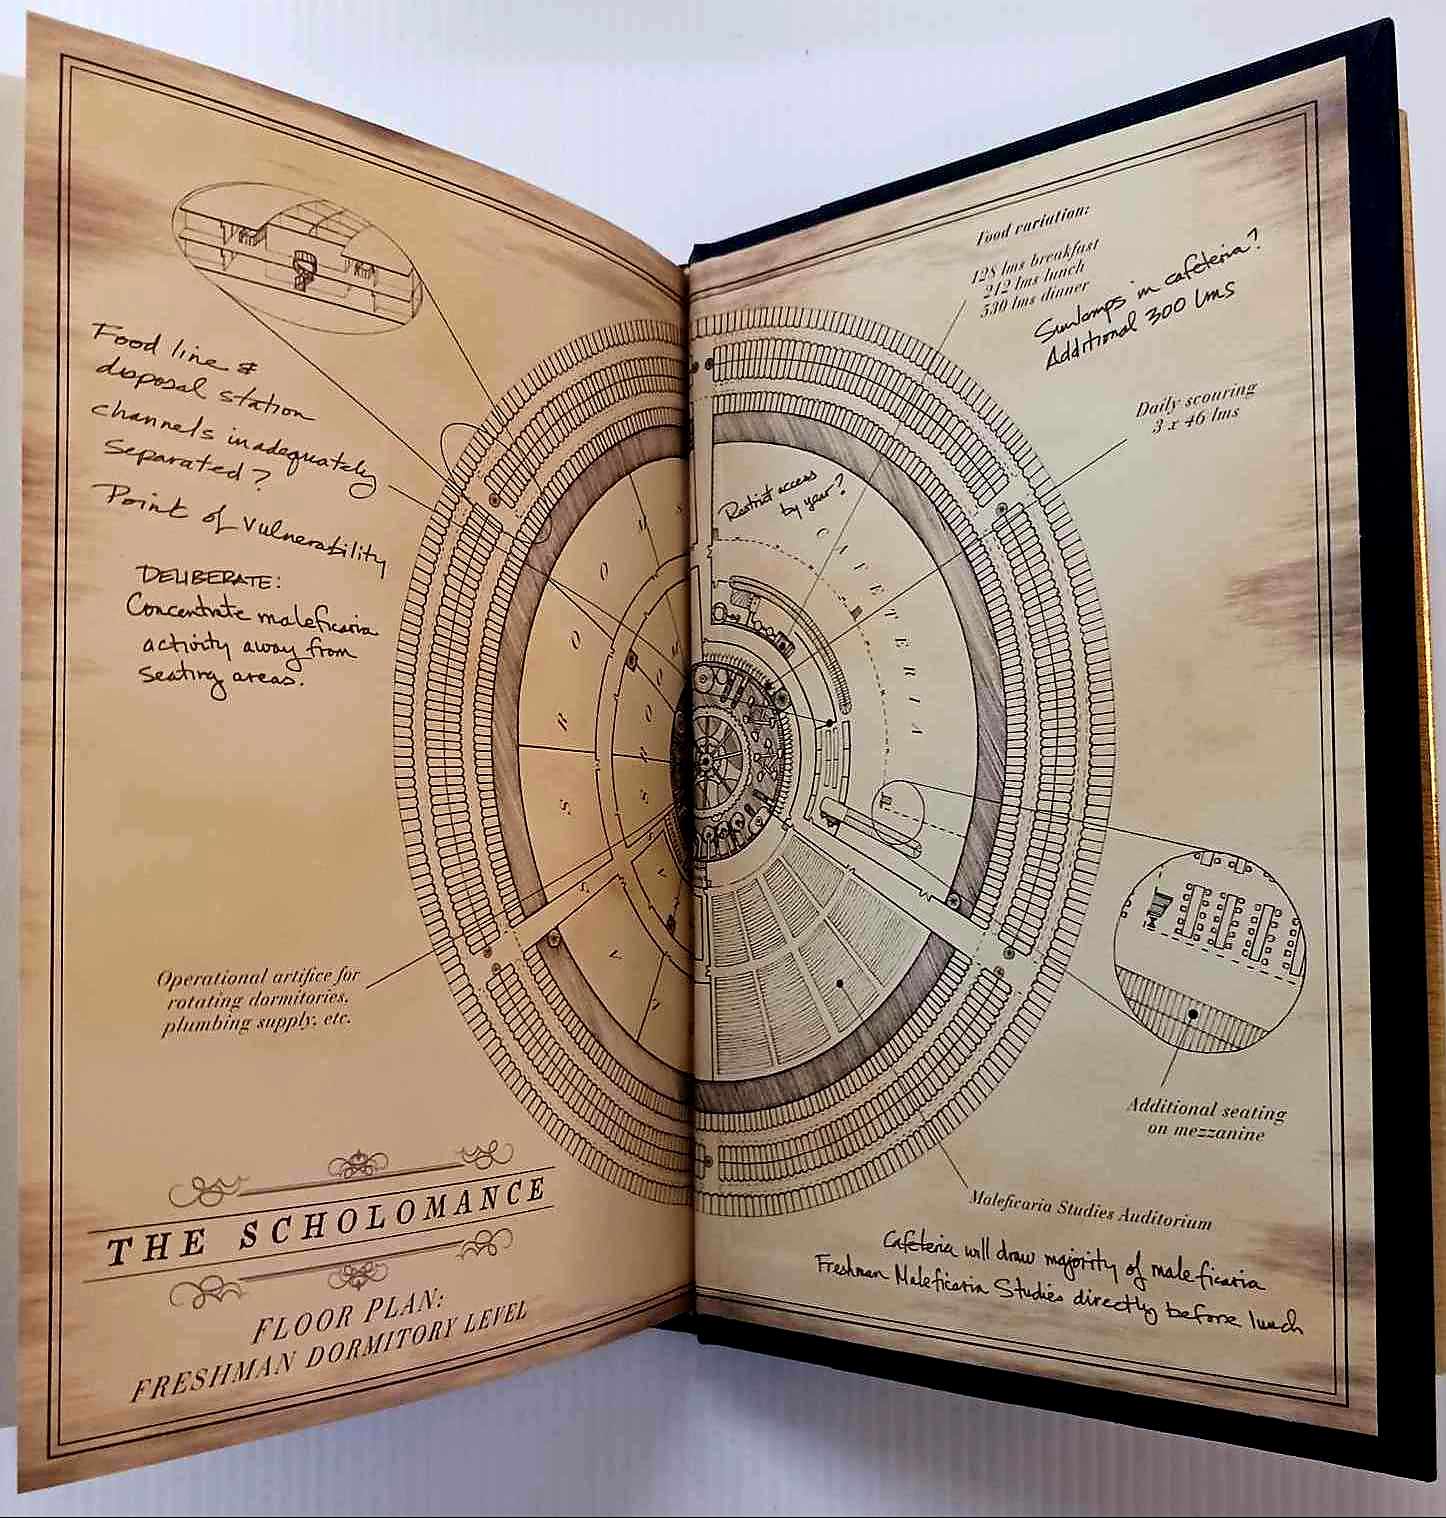 Food line &
disposal station
channels inadequately
separated?
Point of vulnerability
DELIBERATE:
Concentrate maleficaria
activity away from
seating areas.
Operational artifice for
rotating dormitories,
plumbing supply, etc.
THE SCHOLOMANCE
FLOOR PLAN:
FRESHMAN DORMITORY LEVEL
Food variation:
128 lms breakfast
242 lms lunch
530 lms dinner
Sunlamps in cafeteria?
Additional 300 lms
Daily scouring
3 x 46 lms
Restrict access
by year?
CAFETERIA
Additional seating
on mezzanine
Maleficaria Studies Auditorium
Cafeteria will draw majority of maleficaria
Freshman Maleficaria Studies directly before lunch